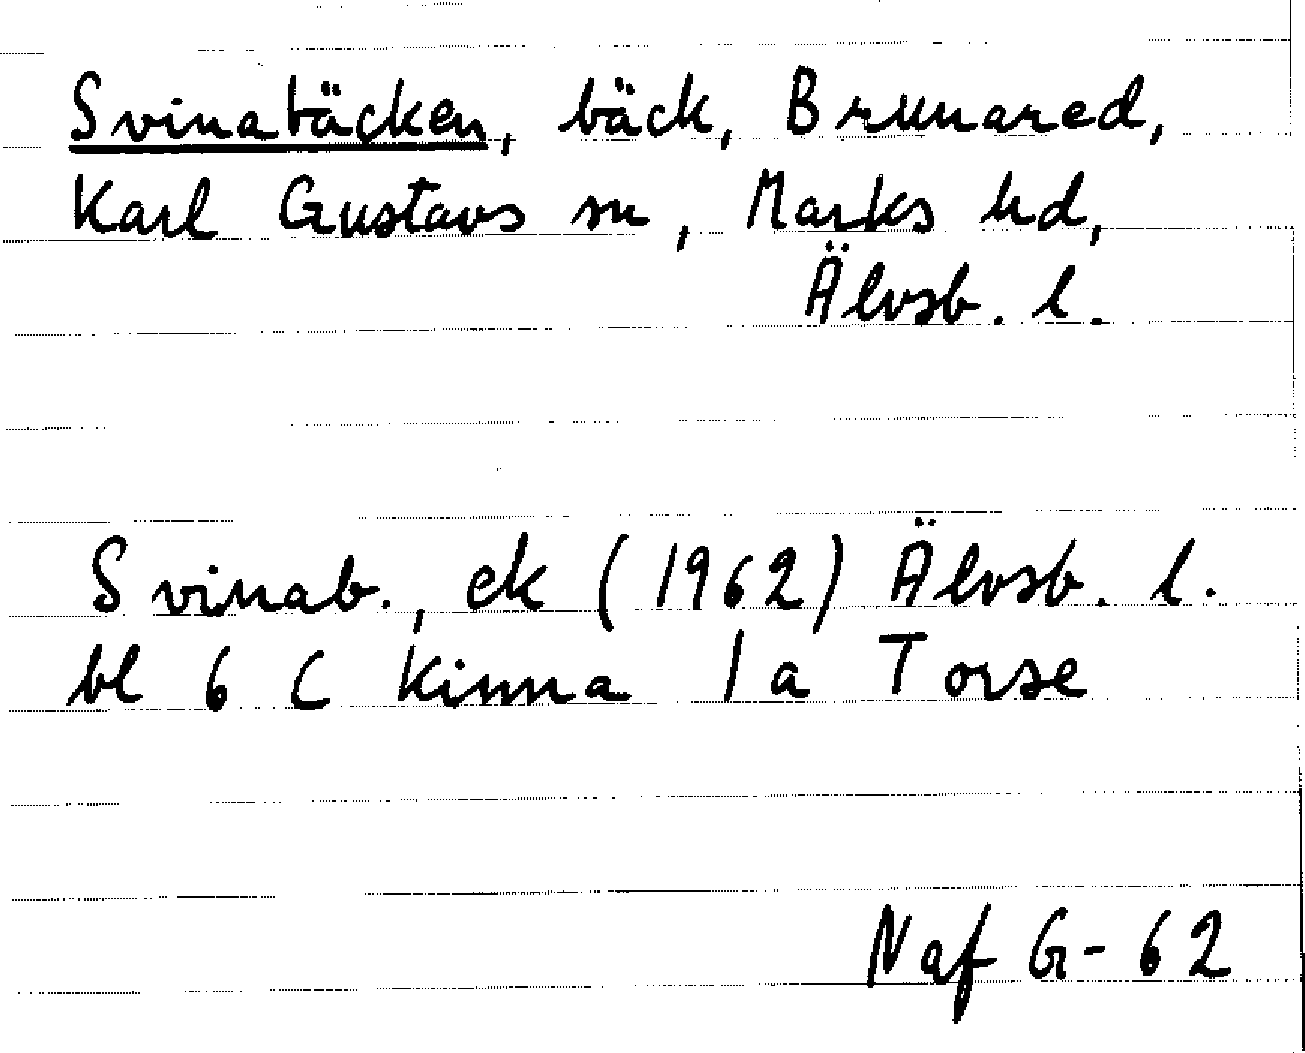 Svinabäcken, bäck, Brunared,
Karl Gustavs sn, Marks hd,
Älvsb. l.
Svinab., ek (1962) Älvsb. l.
bl 6 C Kinna 1a Torse
Naf G-62